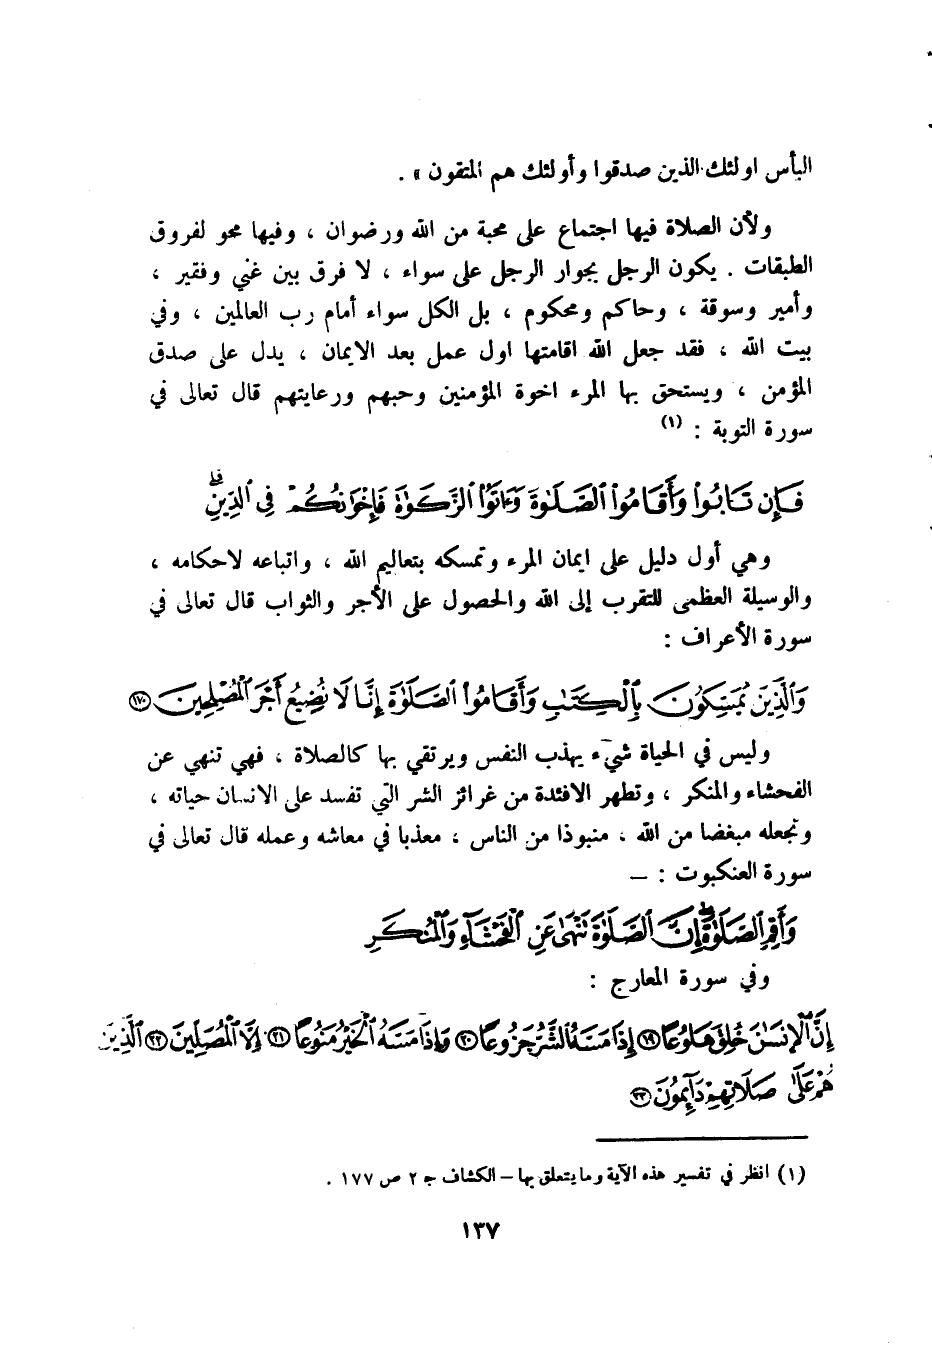 البأس اولئك الذين صدقوا وأولئك هم المتقون » .
ولأن الصلاة فيها اجتماع على محبة من الله ورضوان ، وفيها محو لفروق
الطبقات . يكون الرجل بجوار الرجل على سواء ، لا فرق بين غني وفقير ،
وأمير وسوقة ، وحاكم ومحكوم ، بل الكل سواء أمام رب العالمين ، وفي
بيت الله ، فقد جعل الله اقامتها اول عمل بعد الايمان ، يدل على صدق
المؤمن ، ويستحق بها المرء اخوة المؤمنين وحبهم ورعايتهم قال تعالى في
سورة التوبة : (١)
فَإِن تَابُوا۟ وَأَقَامُوا۟ ٱلصَّلَوٰةَ وَءَاتَوُا۟ ٱلزَّكَوٰةَ فَإِخْوَٰنُكُمْ فِي ٱلدِّينِ ۗ
وهي أول دليل على ايمان المرء وتمسكه بتعاليم الله ، واتباعه لاحكامه ،
والوسيلة العظمى للتقرب إلى الله والحصول على الأجر والثواب قال تعالى في
سورة الأعراف :
وَٱلَّذِينَ يُمَسِّكُونَ بِٱلْكِتَٰبِ وَأَقَامُوا۟ ٱلصَّلَوٰةَ إِنَّا لَا نُضِيعُ أَجْرَ ٱلْمُصْلِحِينَ ١٧٠
وليس في الحياة شيء يهذب النفس ويرتقي بها كالصلاة ، فهي تنهي عن
الفحشاء والمنكر ، وتطهر الافئدة من غرائز الشر التي تفسد على الانسان حياته ،
وتجعله مبغضا من الله ، منبوذا من الناس ، معذبا في معاشه وعمله قال تعالى في
سورة العنكبوت : —
وَأَقِمِ ٱلصَّلَوٰةَ ۖ إِنَّ ٱلصَّلَوٰةَ تَنْهَىٰ عَنِ ٱلْفَحْشَآءِ وَٱلْمُنكَرِ
وفي سورة المعارج :
إِنَّ ٱلْإِنسَٰنَ خُلِقَ هَلُوعًا ١٩ إِذَا مَسَّهُ ٱلشَّرُّ جَزُوعًا ٢٠ وَإِذَا مَسَّهُ ٱلْخَيْرُ مَنُوعًا ٢١ إِلَّا ٱلْمُصَلِّينَ ٢٢ ٱلَّذِينَ
هُمْ عَلَىٰ صَلَاتِهِمْ دَآئِمُونَ ٢٣
(١) انظر في تفسير هذه الآية وما يتعلق بها – الكشاف جـ ٢ ص ١٧٧ .
١٣٧